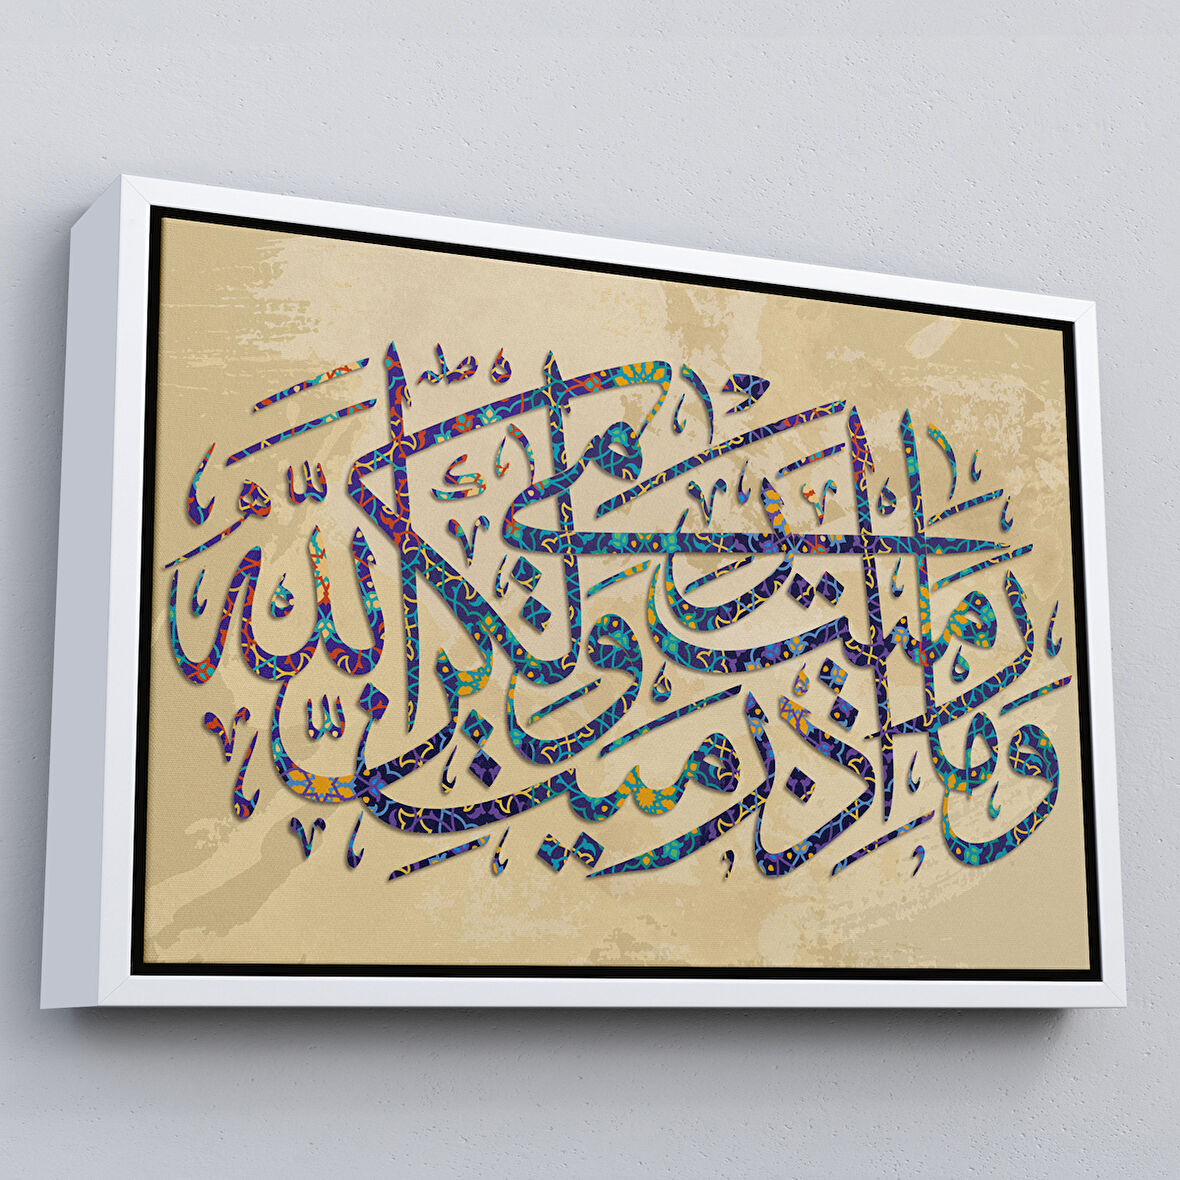 وَمَا رَمَيْتَ إِذْ رَمَيْتَ وَلَٰكِنَّ اللَّهَ رَمَىٰ